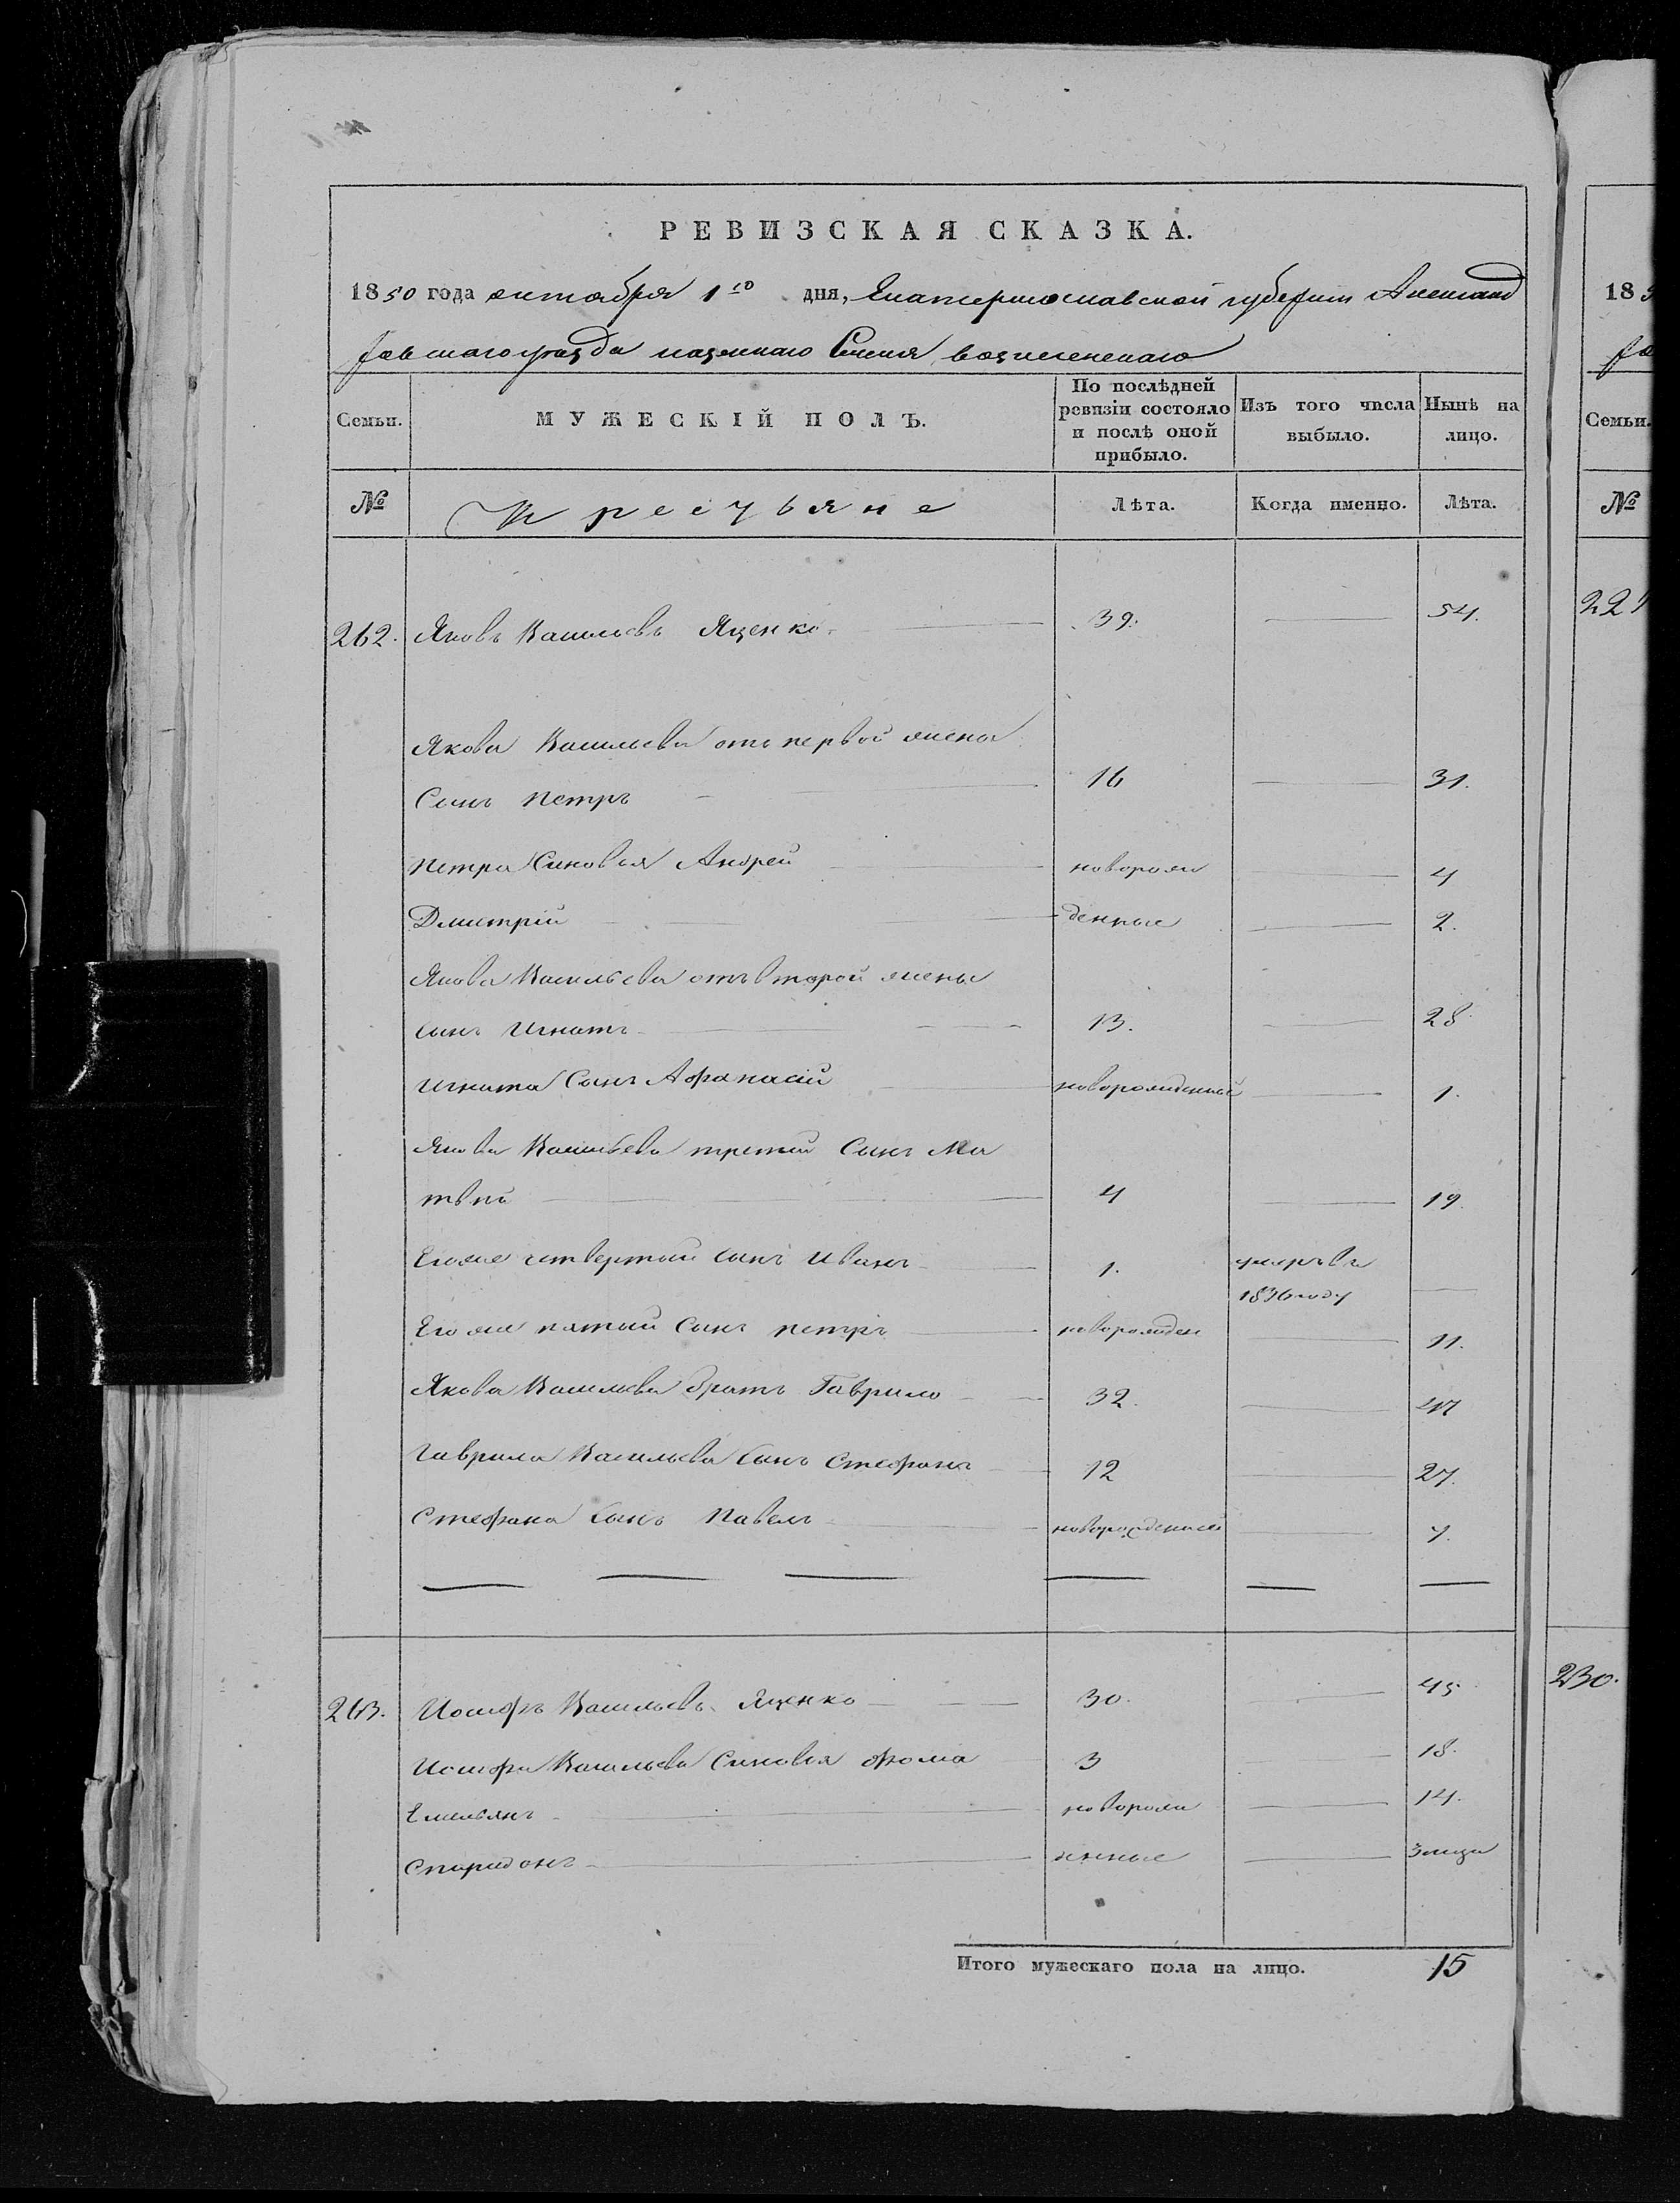 РЕВИЗСКАЯ СКАЗКА.
1850 года октября 1го дня, Екатеринославской губернiи Александ
ровскаго уезда казеннаго Селенiя вознесенскаго
Семьи. МУЖЕСКІЙ ПОЛЪ. По послѣдней ревизіи состояло и послѣ оной прибыло. Изъ того числа выбыло. Нынѣ на лицо.
№ Крестьяне Лѣта. Когда именно. Лѣта.
262. Яковъ Васильевъ Яценко 39. 54.
Якова Васильева отъ первой жены
Сынъ Петръ 16 31.
Петра Синовья Андрей новорож 4
Дмитрiй денные 2.
Якова Васильева отъ второй жены
сынъ Игнатъ 13. 28.
Игната Сынъ Афанасiй новорожденный 1.
Якова Васильева третий Сынъ Ма
твѣй 4 19.
Егоже четвертый сынъ Иванъ 1. умеръ въ
1836 году
Егоже пятый Сынъ петръ новорожден 11.
Якова Васильева братъ Гаврило 32. 47
Гаврила Васильева Сынъ Стефанъ 12 27.
Стефана Сынъ Павелъ новорожденный 7.
263. Иосифъ Васильевъ Яценко 30. 45.
Иосифа Васильева Синовья фома 3 18.
Емельянъ новорож 14.
Спиридонъ денные 3 меца
Итого мужескаго пола на лицо. 15
18
Семьи.
№
230.